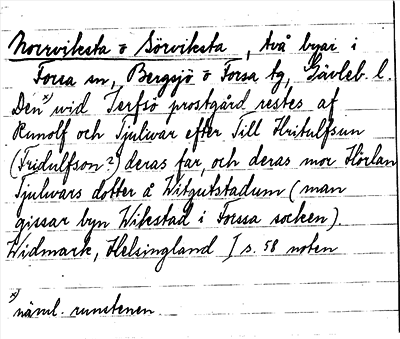 Norrviksta o Sörviksta, två byar i
Forsa sn, Bergsjö o Forsa tg, Gävleb. l.
Den x) wid Jerfsö prostgård restes af
Runolf och Tjulwar efter Till Hritulfsun
(Fridulfson?) deras far, och deras mor Hörlan
Tjulwars dotter å Witgutstadum (man
gissar byn Wikstad i Forssa socken).
Widmark, Helsingland I s. 58 noten
x) näml. runstenen